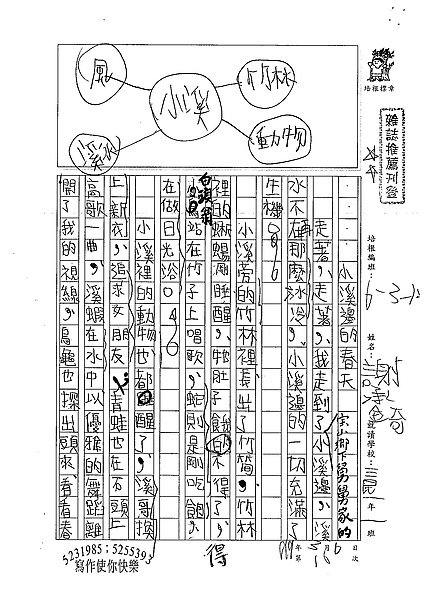 風
竹林
小溪
溪水
動物
培根標章
雜誌推薦刊登
培根編班：
6-3
姓名：
謝
就讀學校：
三民
一年
一班
小溪邊的春天
走著，走著，我走到了
宗山鄉下舅舅家的
小溪邊，溪
水不再那麼冰冷，小溪邊的一切充滿了
生機。
小溪旁的竹林裡長出了竹筍，竹林
裡的蜥蜴剛睡醒，牠肚子餓的不得了，
得
白頭翁站在竹子上唱歌，蛇則是剛吃飽，
在做日光浴。
小溪裡的動物也都醒了，溪哥換
上新衣，追求女朋友，青蛙也在石頭上
高歌一曲，溪蝦在水中以優雅的舞蹈離
開了我的視線，烏龜也探出頭來，看看春
年 月 日
第 次
5231985；5255393
寫作使你快樂